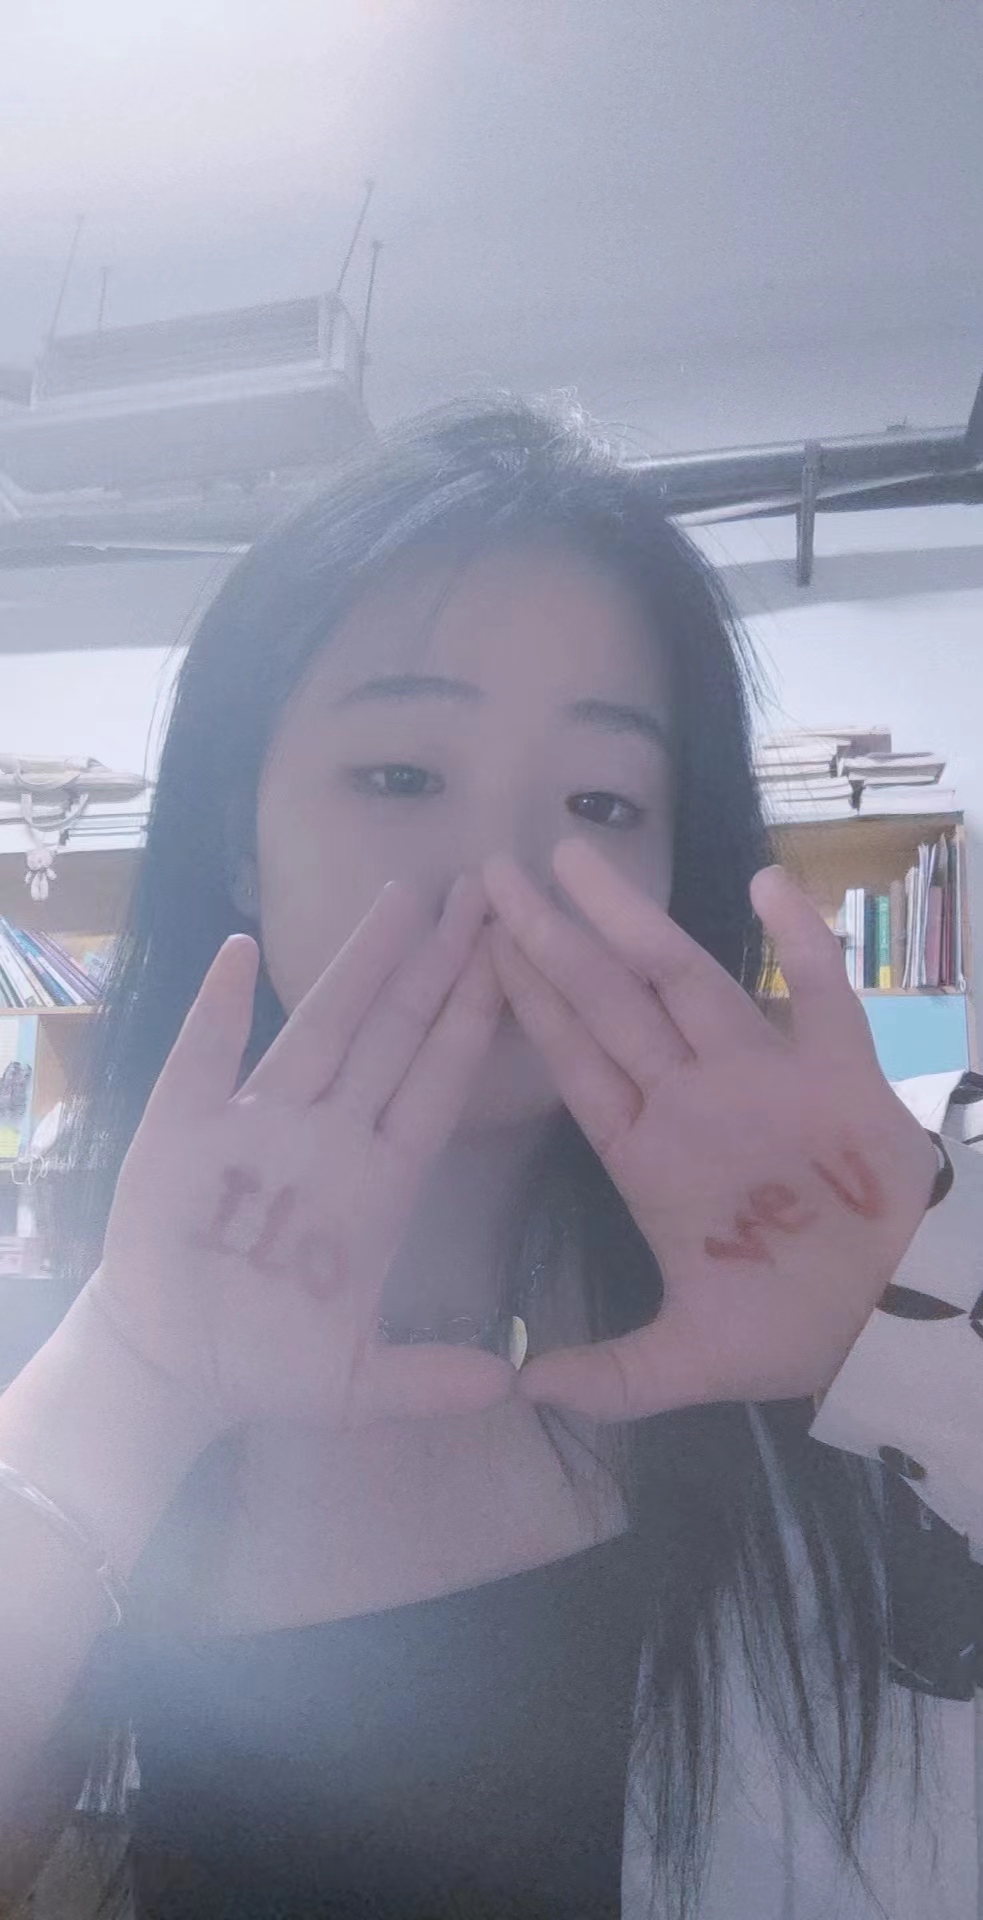 I Lo
ve U